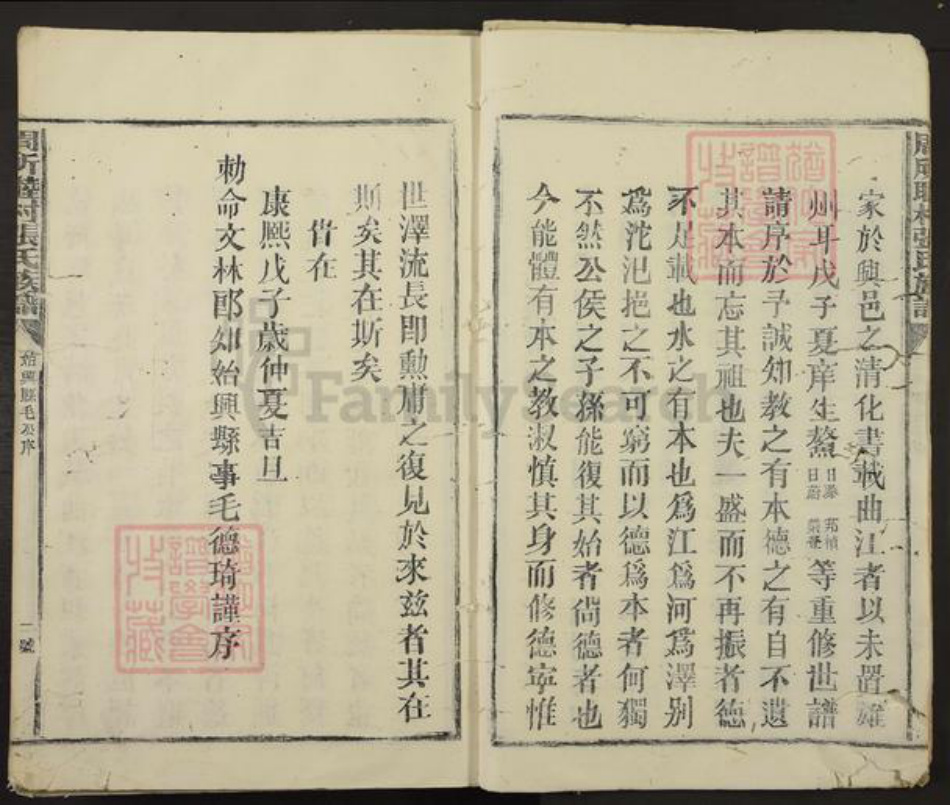 家於興邑之清化書載曲江者以未置雄
州耳戊子夏庠生鰲日
日蔚
邦楨
等重修世譜
請序於予誠知教之有本德之有自不遺
其本而忘其祖也夫一盛而不再振者德
不足載也水之有本也爲江爲河爲澤别
爲沱汜挹之不可窮而以德爲本者何獨
不然公侯之子孫能復其始者尙德者也
今能體有本之教淑慎其身而修德寧惟
世澤流長即勳庸之復見於來兹者其在
斯矣其在斯矣
旹在
康熙戊子歲仲夏吉旦
勅命文林郎知始興縣事毛德琦謹序
張氏族譜
始興縣毛公序
二號
FamilySearch